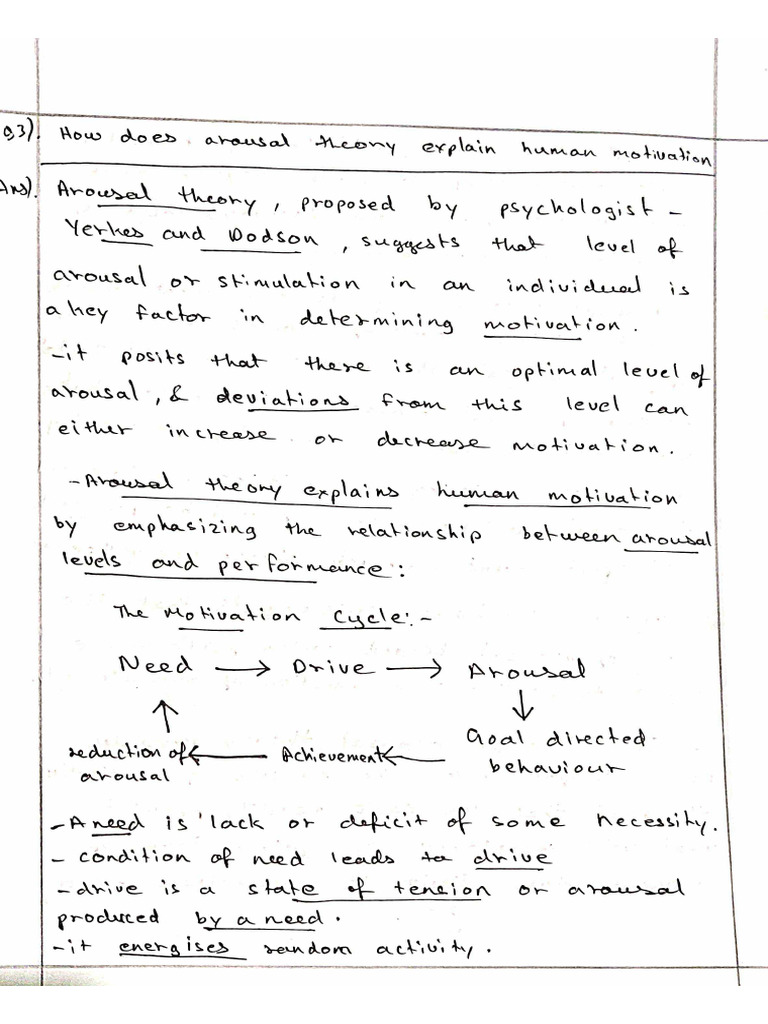 Q3). How does arousal theory explain human motivation
Ans). Arousal theory, proposed by psychologist -
Yerkes and Dodson, suggests that level of
arousal or stimulation in an individual is
a key factor in determining motivation.
-it posits that there is an optimal level of
arousal, & deviations from this level can
either increase or decrease motivation.
- Arousal theory explains human motivation
by emphasizing the relationship between arousal
levels and performance:
The Motivation Cycle:-
Need → Drive → Arousal
↑ ↓
reduction of ← Achievement ← Goal directed
arousal behaviour
- A need is lack or deficit of some necessity.
- condition of need leads to drive
- drive is a state of tension or arousal
produced by a need.
-it energises random activity.